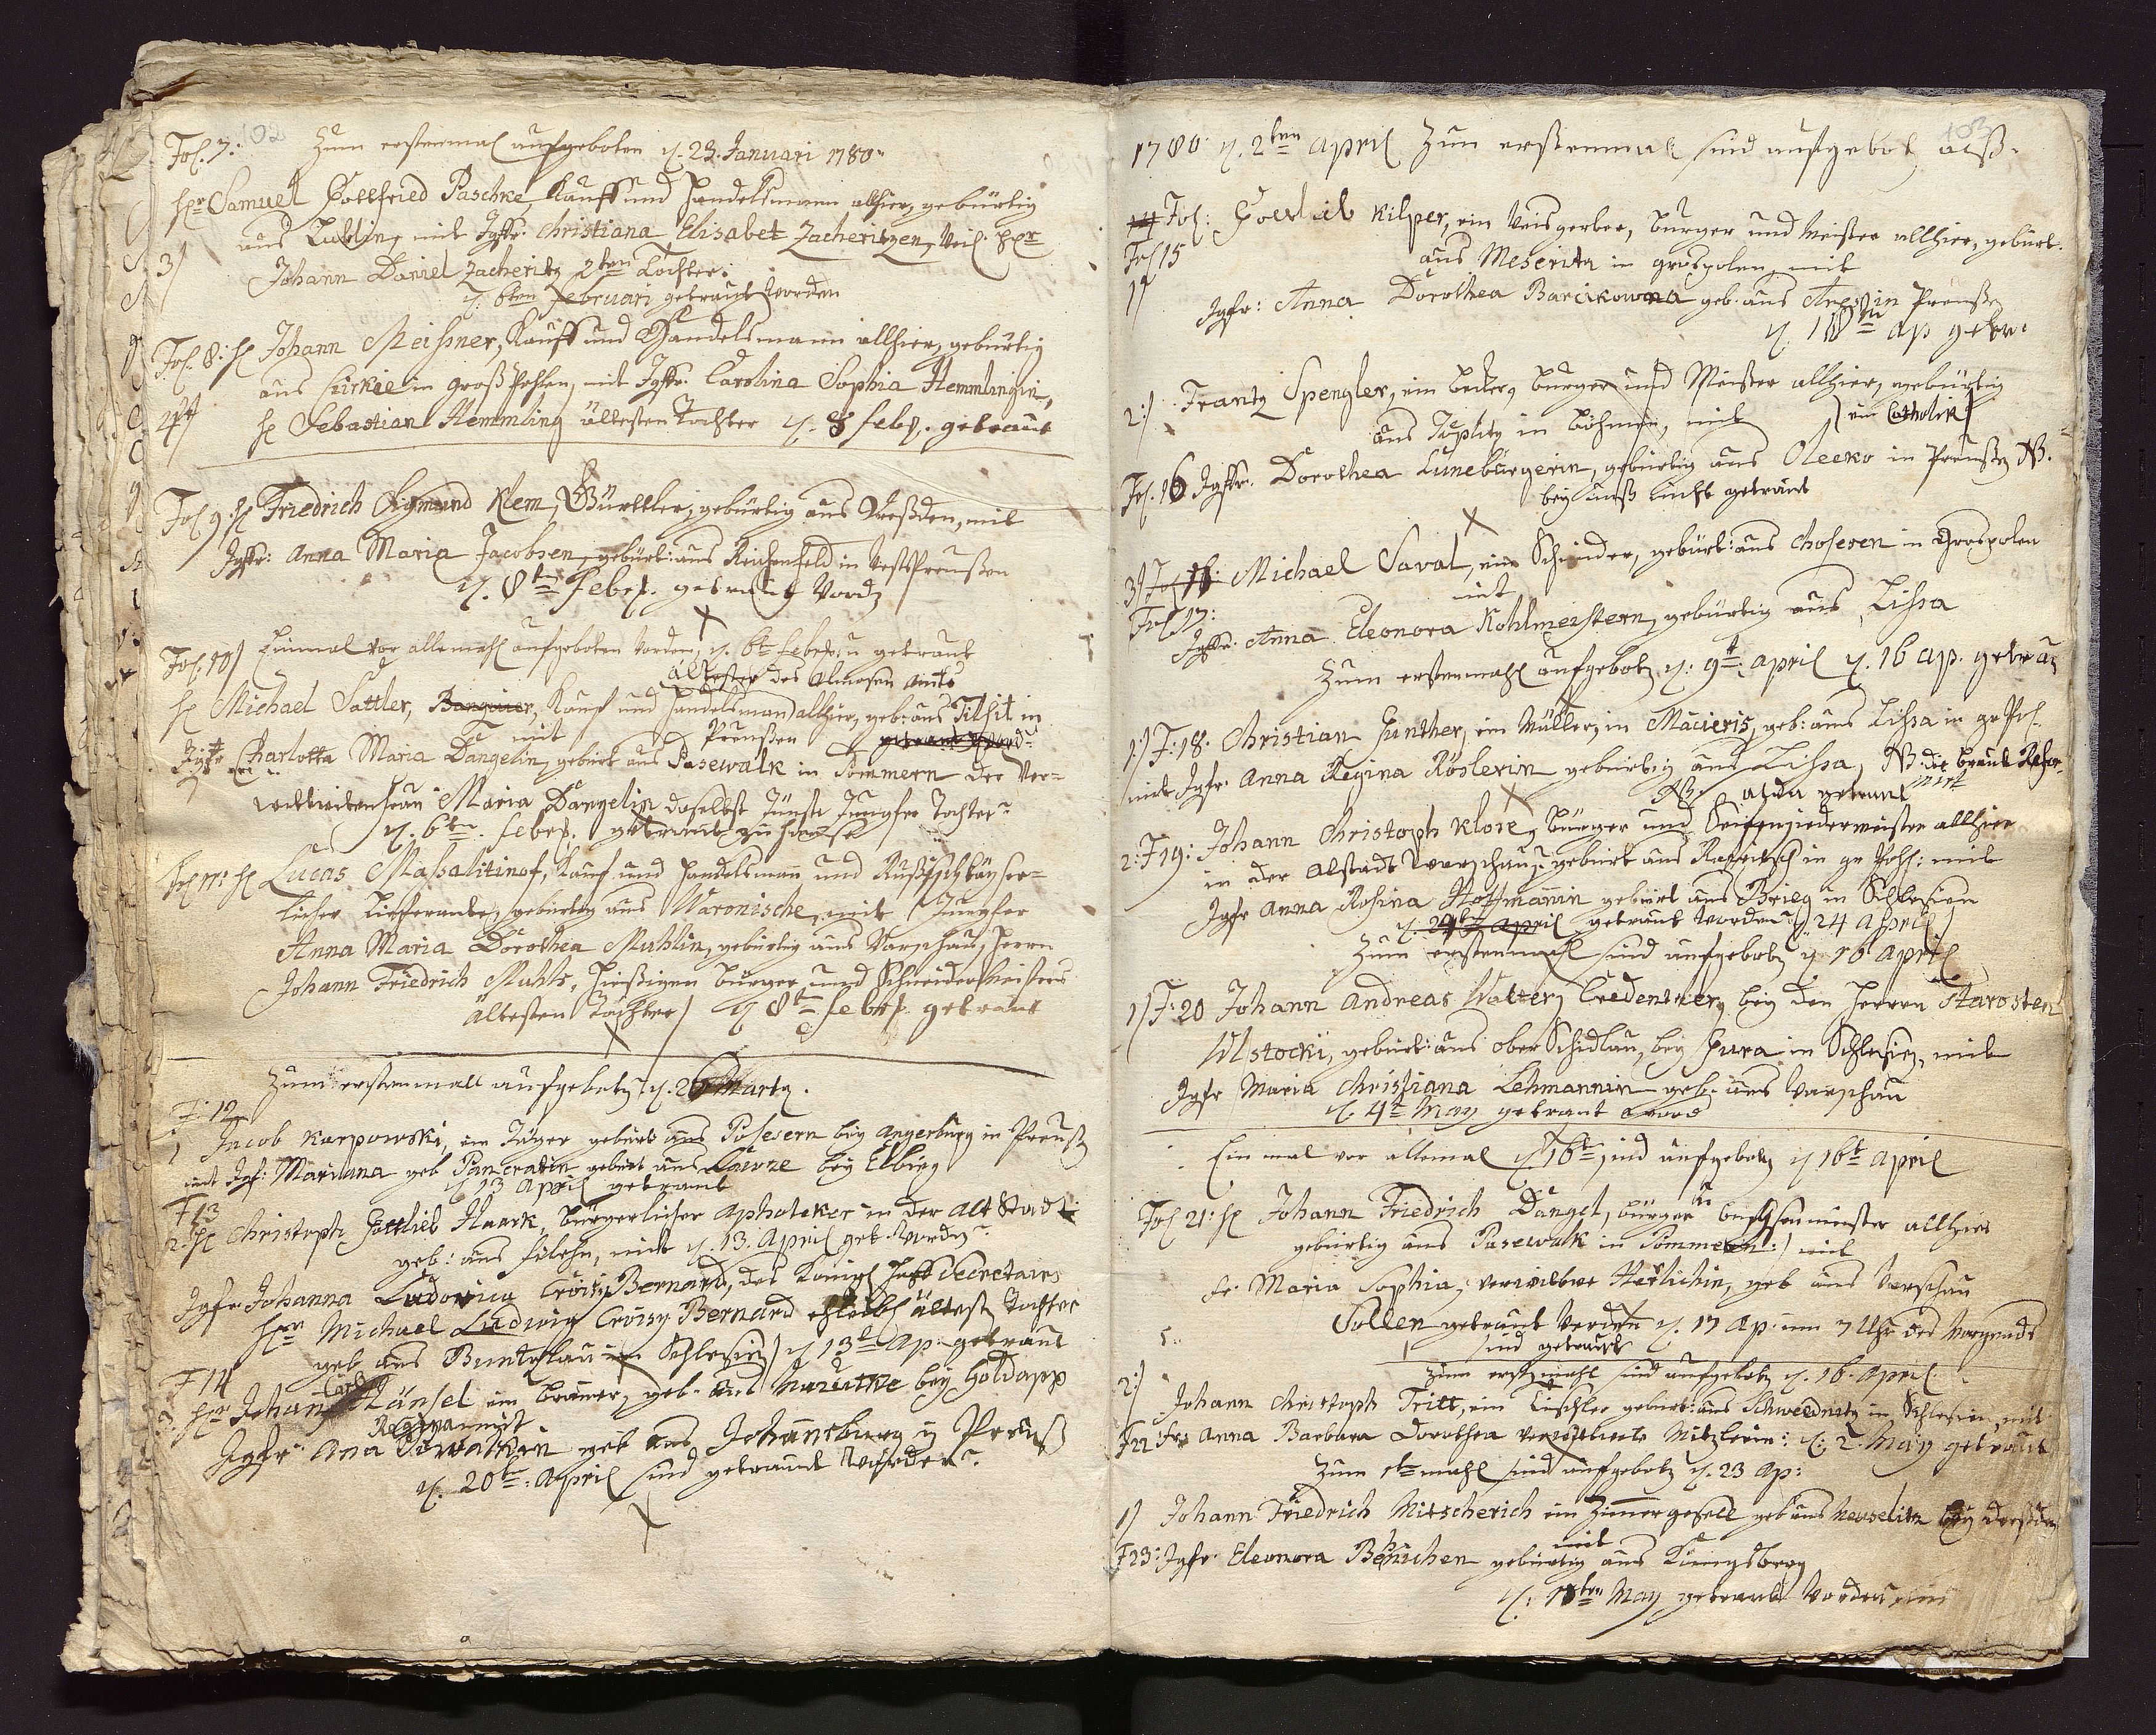 102
Fol. 7: Zum erstenmal aufgeboten d. 23. Januari 1780
Hr Samuel Gottfried Paschke, Kauff und Handelsmann allhier, gebürtig
aus Lublin, mit Jgfr. Christiana Elisabet Zacheritzen, Weil. Hr
3) Johann Daniel Zacheritz 2ten Tochter.
d. 6ten Februari getraut worden
Fol. 8: H Johann Meißner, Kauff und Handelsmann allhier, gebürtig
aus Zirkie in Groß Pohlen, mit Jgfr. Carolina Sophia Hemmlingin,
4) H Sebastian Hemmling ältesten Tochter d. 8 Febr. getraut
Fol 9 H Friedrich Sigmund Klem, Gürttler, gebürtig aus Dreßden, mit
Jgfr: Anna Maria Jacobsen, gebürt: aus Reichenfeld in WestPreußen
d. 8t Febr. getraut word
Fol. 10) Einmal vor allemahl aufgeboten worden, d. 6t Febr. u getraut
Ältester des Almosen Amts
H Michael Sattler, Banquier, Kauf und Handelsmann allhier, geb: aus Tilsit in
mit Preußen getraut word
Jgfr Charlotta Maria Dangelin, gebürt aus Pasewalk in Pommern der Ver=
wittweten Frau Maria Dangelin daselbst Jüngste Jungfer Tochter
d. 6t. Febr. getraut zu Hause
Fol 11: H Lucas Maßalitinof, Kauf und Handelsmann und Rußisch Kayser=
licher Lieferante, gebürtig aus Waronische, mit Jungfer
Anna Maria Dorothea Muhlin, gebürtig aus Warschau, Herrn
Johann Friedrich Muhls, hiesigen Bürger und Schneider Meisters
ältesten Tochter) d 8t Febr. getraut
Zum erstenmall aufgeboten d. 26 Martz.
F: 12
1 Jacob Karpowski, ein Jäger gebürt aus Posesern bey Angerburg in Preuß
mit Jgf: Mariana geb Pancratin gebürt aus Lawze bey Elbing
d 13 April getraut
F 13
2. H Christoph Gottlieb Haack, bürgerlicher Apholeker in der Alt Stadt
geb: aus Filehn, mit d. 13. April get worden
Jgfr Johanna Ludovica Croisy Bernard, des Königl Hoff Secretairs
Hrn Michael Ludwig Croisy Bernard ehleibl ältest Tochter
geb aus Buntzlau in Schlesien) d 13t Ap. getraut
F 14
3. Hr Johan Carl Hänsel ein Brauer, geb. aus bey Goldapp
Regina mit
Jgfr Ana geb aus Johannsburg in Preuß
d. 20t: April sind getraut worden.
103
1780 d. 2ten April Zum erstenmal sind aufgebot alß.
14 Fol: Gottlieb Kilper, ein Weisgerber, Bürger und Meister allhier, gebürt.
Fol 15 aus Meseritz in grospolen, mit
1) Jgfr: Anna Dorothea Barcikowna geb. aus in Preußen
d. 18ten Ap getr.
2:) Frantz Spengler, ein Becker, Bürger und Meister allhier, gebürtig
aus Töplitz in Böhmen, mit (ein Catholik)
Fol. 16 Jgfr. Dorothea Lunebürgerin, gebürtig aus Olecko in Preußen NB.
bey uns nicht getraut
3) Fol 16: Michael Saval, ein Schneider, gebürt: aus Chosesen in Grospolen
Fol 17: mit
Jgfr. Anna Eleonora Kohlmeistern, gebürtig aus Lissa
Zum erstenmahl aufgebot d. 9t. April d. 16 Ap. getrau
1) F: 18. Christian Gunther, ein Müller, in Macieris, geb: aus Lissa in gr Pol.
mit Jgfr. Anna Regina Röslerin gebürtig aus Lissa, NB die Braut Refor-
mirt
NB. alda getraut
2: F 19: Johann Christoph Klose, Bürger und Seifensiedermeister allhier
in der Altstadt Warschau, gebürt aus Rawitsch in gr Pohl: mit
Jgfr Anna Rosina Hoffmannin gebürt aus Brieg in Schlesien
d. 24t April getraut worden d. 24 April)
Zum erstenmahl sind aufgebot d 16 April
1) F: 20 Johann Andreas Walter, Credentzer, bey den Herrn Starosten
Ulstocki, gebürt: aus ober Schidlau, bey Hura in Schlesien, mit
Jgfr Maria Christiana Lehmannin geb. aus Warschau
d. 4t May getraut word
Ein mal vor allemal d 16t sind aufgebot d 16t April
Fol 21: H Johann Friedrich Dangel, Bürger u Büchsenmeister allhier
gebürtig aus Pasewalk in Pommern:) mit
Fr Maria Sophia, verwittwe Herlichin, geb aus Warschau
Sollen getraut werden d. 17 Ap. um 7 Uhr des Morgends
sind getraut
Zum erstemahl sind aufgebot d. 16. April
2:) Johann Christoph Tritt, ein Tischler gebürt: aus Schweidnitz in Schlesien, mit
F 22 Fr: Anna Barbara Dorothea verwittwete Nitzlerin: d. 2. May getraut
Zum 1ten mahl sind aufgebot d. 23 Ap:
1) Johann Friedrich Mitscherich ein Zimergesell geb aus Neuselitz bey Dreßden
mit
F 23: Jgfr. Eleonora Behnichen gebürtig aus Königsberg
d: 18ten May getraut worden